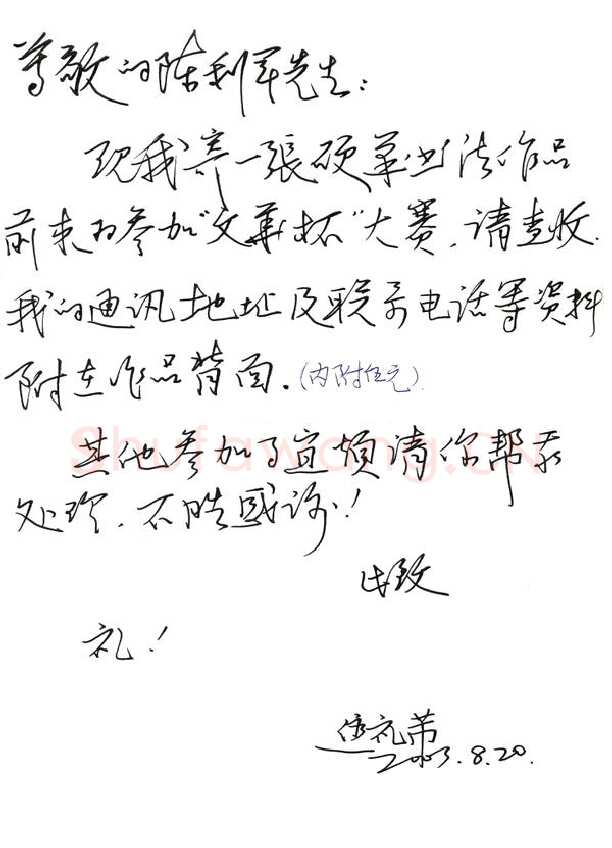 尊敬的陈利军先生：
现我寄一張硬筆书法作品
前来为参加"文華杯"大赛,请查收.
我的通讯地址及联系电话等资料
附在作品背面.(内附伍元)
其他参加事宜烦请你帮我
处理,不勝感谢!
此致
礼!
2003.8.20.
Shufawang.CN